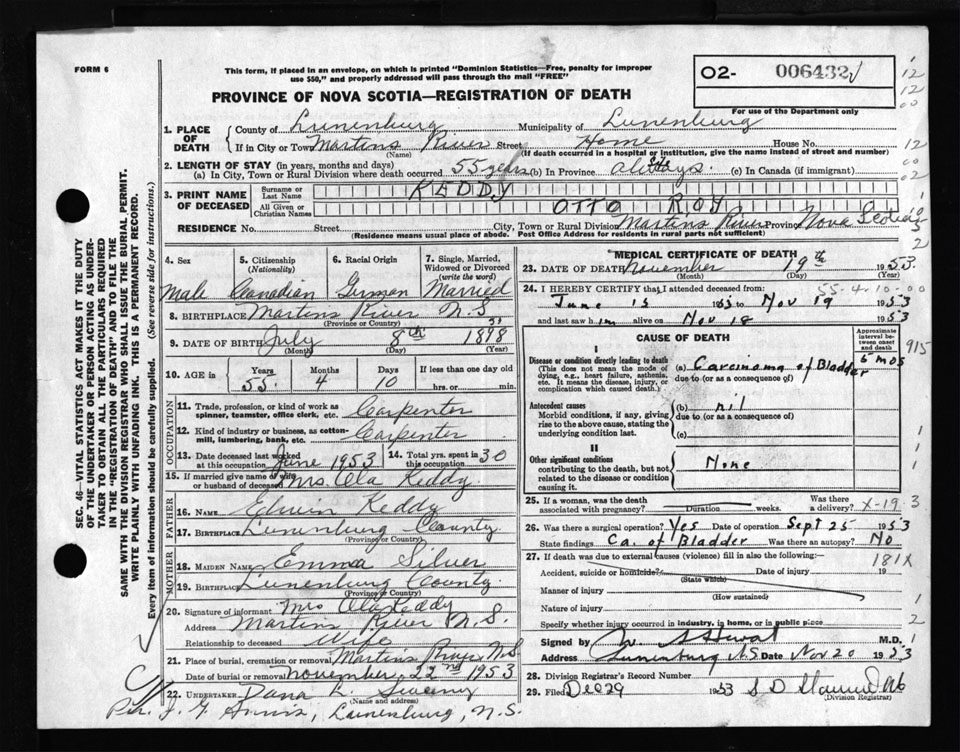 FORM 6
This form, if placed in an envelope, on which is printed "Dominion Statistics—Free, penalty for improper
use $50," and properly addressed will pass through the mail "FREE"
O2- 006432
For use of the Department only
PROVINCE OF NOVA SCOTIA—REGISTRATION OF DEATH
1. PLACE OF DEATH
County of Lunenburg Municipality of Lunenburg
If in City or Town Martins River Street Home House No.
(Name) (If death occurred in a hospital or institution, give the name instead of street and number)
2. LENGTH OF STAY (in years, months and days)
(a) In City, Town or Rural Division where death occurred 55 years (b) In Province always (c) In Canada (if immigrant)
3. PRINT NAME OF DECEASED
Surname or Last Name KEDDY
All Given or Christian Names OTTO ROY
RESIDENCE No. Street City, Town or Rural Division Martins River Province Nova Scotia
(Residence means usual place of abode. Post Office Address for residents in rural parts not sufficient)
4. Sex Male
5. Citizenship (Nationality) Canadian
6. Racial Origin German
7. Single, Married, Widowed or Divorced (write the word) Married
8. BIRTHPLACE Martins River N.S.
(Province or Country)
9. DATE OF BIRTH July 8th 1898
(Month) (Day) (Year)
10. AGE in Years Months Days If less than one day old
55 4 10 hrs. or min.
OCCUPATION
11. Trade, profession, or kind of work as spinner, teamster, office clerk, etc. Carpenter
12. Kind of industry or business, as cotton-mill, lumbering, bank, etc. Carpenter
13. Date deceased last worked at this occupation June 1953
14. Total yrs. spent in this occupation 30
15. If married give name of wife or husband of deceased Mrs. Ola Keddy
FATHER
16. Name Edwin Keddy
17. Birthplace Lunenburg County
(Province or Country)
MOTHER
18. MAIDEN NAME Emma Silver
19. BIRTHPLACE Lunenburg County
(Province or Country)
20. Signature of informant Mrs Ola Keddy
Address Martins River N.S.
Relationship to deceased Wife
21. Place of burial, cremation or removal Martins River N.S
Date of burial or removal November 22nd 1953
22. UNDERTAKER Dana L. Sweeny
(Name and address)
Lunenburg, N.S.
MEDICAL CERTIFICATE OF DEATH
23. DATE OF DEATH November 19th 1953.
(Month) (Day) (Year)
24. I HEREBY CERTIFY that I attended deceased from: 55-4-10-00
June 15 1953 to Nov 19 1953
and last saw him alive on Nov 18 1953
CAUSE OF DEATH
Approximate interval between onset and death
I
Disease or condition directly leading to death
(This does not mean the mode of dying, e.g., heart failure, asthenia, etc. It means the disease, injury, or complication which caused death.)
(a) Carcinoma of Bladder 5 mos
due to (or as a consequence of)
Antecedent causes
Morbid conditions, if any, giving rise to the above cause, stating the underlying condition last.
(b) nil
due to (or as a consequence of)
(c)
II
Other significant conditions
contributing to the death, but not related to the disease or condition causing it
None
25. If a woman, was the death associated with pregnancy? Duration weeks. Was there a delivery? X-19
26. Was there a surgical operation? Yes Date of operation Sept 25 1953
State findings Ca. of Bladder Was there an autopsy? No
27. If death was due to external causes (violence) fill in also the following:—
181X
Accident, suicide or homicide? Date of injury 19
(State which)
Manner of injury
(How sustained)
Nature of injury
Specify whether injury occurred in industry, in home, or in public place
Signed by M.D.
Address Lunenburg N.S. Date Nov 20 1953
28. Division Registrar's Record Number
29. Filed Dec 29 1953
(Division Registrar)
SEC. 46—VITAL STATISTICS ACT MAKES IT THE DUTY
OF THE UNDERTAKER OR PERSON ACTING AS UNDER-
TAKER TO OBTAIN ALL THE PARTICULARS REQUIRED
IN THE "REGISTRATION OF DEATH" AND TO FILE THE
SAME WITH THE DIVISION REGISTRAR WHO SHALL ISSUE THE BURIAL PERMIT.
WRITE PLAINLY WITH UNFADING INK. THIS IS A PERMANENT RECORD.
Every item of information should be carefully supplied. (See reverse side for instructions.)
1
12
12
00
12
00
02
10
5
2
915
1
1
1
3
2
1
2